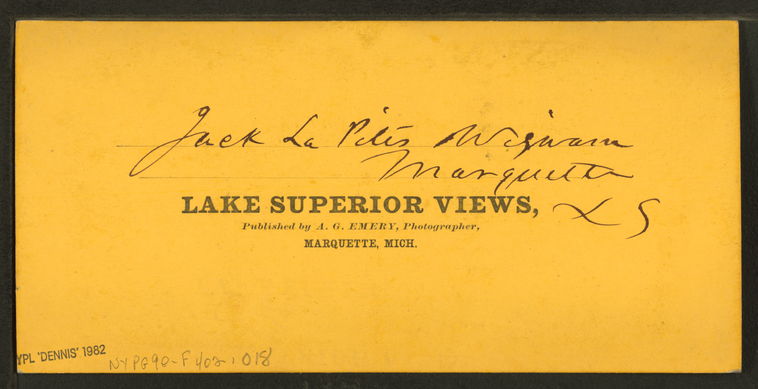 Jack La Pete's Wigwam
Marquette
LAKE SUPERIOR VIEWS, L S
Published by A. G. EMERY, Photographer,
MARQUETTE, MICH.
YPL 'DENNIS' 1982
NYPG90-F402.018